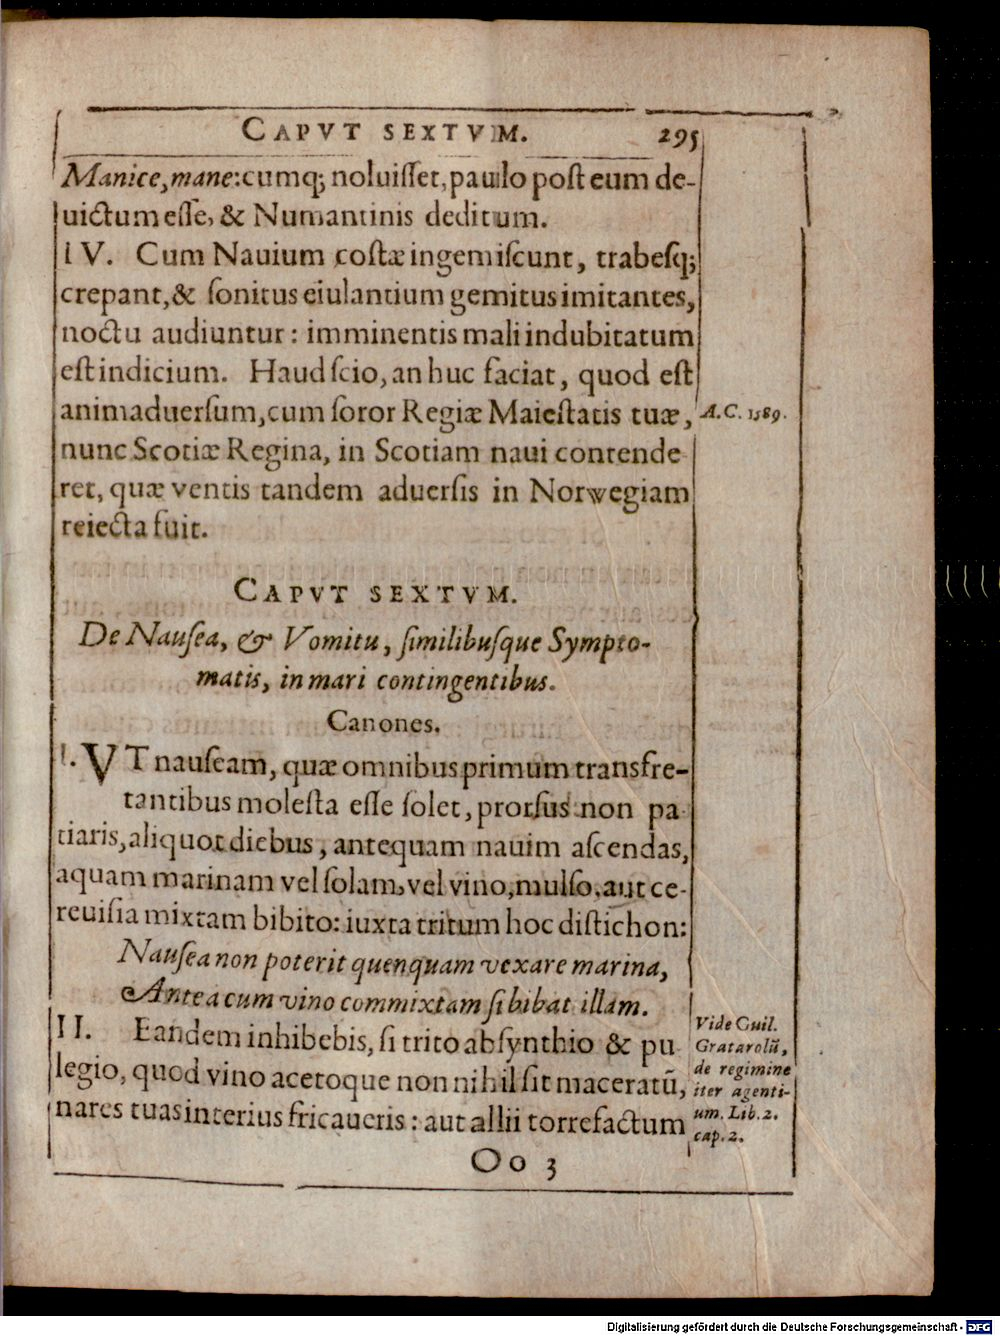 CAPVT SEXTVM. 295
Manice, mane: cumq; noluiſſet, paullo poſt eum de-
uictum eſſe, & Numantinis deditum.
IV. Cum Nauium coſtæ ingemiſcunt, trabeſq;
crepant, & ſonitus eiulantium gemitus imitantes,
noctu audiuntur: imminentis mali indubitatum
eſt indicium. Haud ſcio, an huc faciat, quod eſt
animaduerſum, cum ſoror Regiæ Maieſtatis tuæ,
A.C. 1589.
nunc Scotiæ Regina, in Scotiam naui contende
ret, quæ ventis tandem aduerſis in Norwegiam
reiecta fuit.
CAPVT SEXTVM.
De Nauſea, & Vomitu, ſimilibuſque Sympto-
matis, in mari contingentibus.
Canones.
I. VT nauſeam, quæ omnibus primum transfre-
tantibus moleſta eſſe ſolet, prorſus non pa
tiaris, aliquot diebus, antequam nauim aſcendas,
aquam marinam vel ſolam, vel vino, mulſo, aut ce-
reuiſia mixtam bibito: iuxta tritum hoc diſtichon:
Nauſea non poterit quenquam vexare marina,
Antea cum vino commixtam ſi bibat illam.
II. Eandem inhibebis, ſi trito abſynthio & pu
legio, quod vino acetoque non nihil ſit maceratū,
nares tuas interius fricaueris: aut allii torrefactum
Vide Guil.
Gratarolū,
de regimine
iter agenti-
um. Lib. 2.
cap. 2.
Oo 3
Digitalisierung gefördert durch die Deutsche Forschungsgemeinschaft - DFG